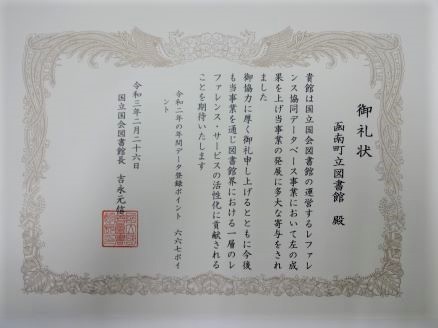 御礼状
函南町立図書館 殿
貴館は国立国会図書館の運営するレファレ
ンス協同データベース事業において左の成
果を上げ当事業の発展に多大な寄与をされ
ました
御協力に厚く御礼申し上げるとともに今後
も当事業を通じ図書館界における一層のレ
ファレンス・サービスの活性化に貢献される
ことを期待いたします
令和二年の年間データ登録ポイント 六六七ポイ
ント
令和三年二月二十六日
国立国会図書館長 吉永元信